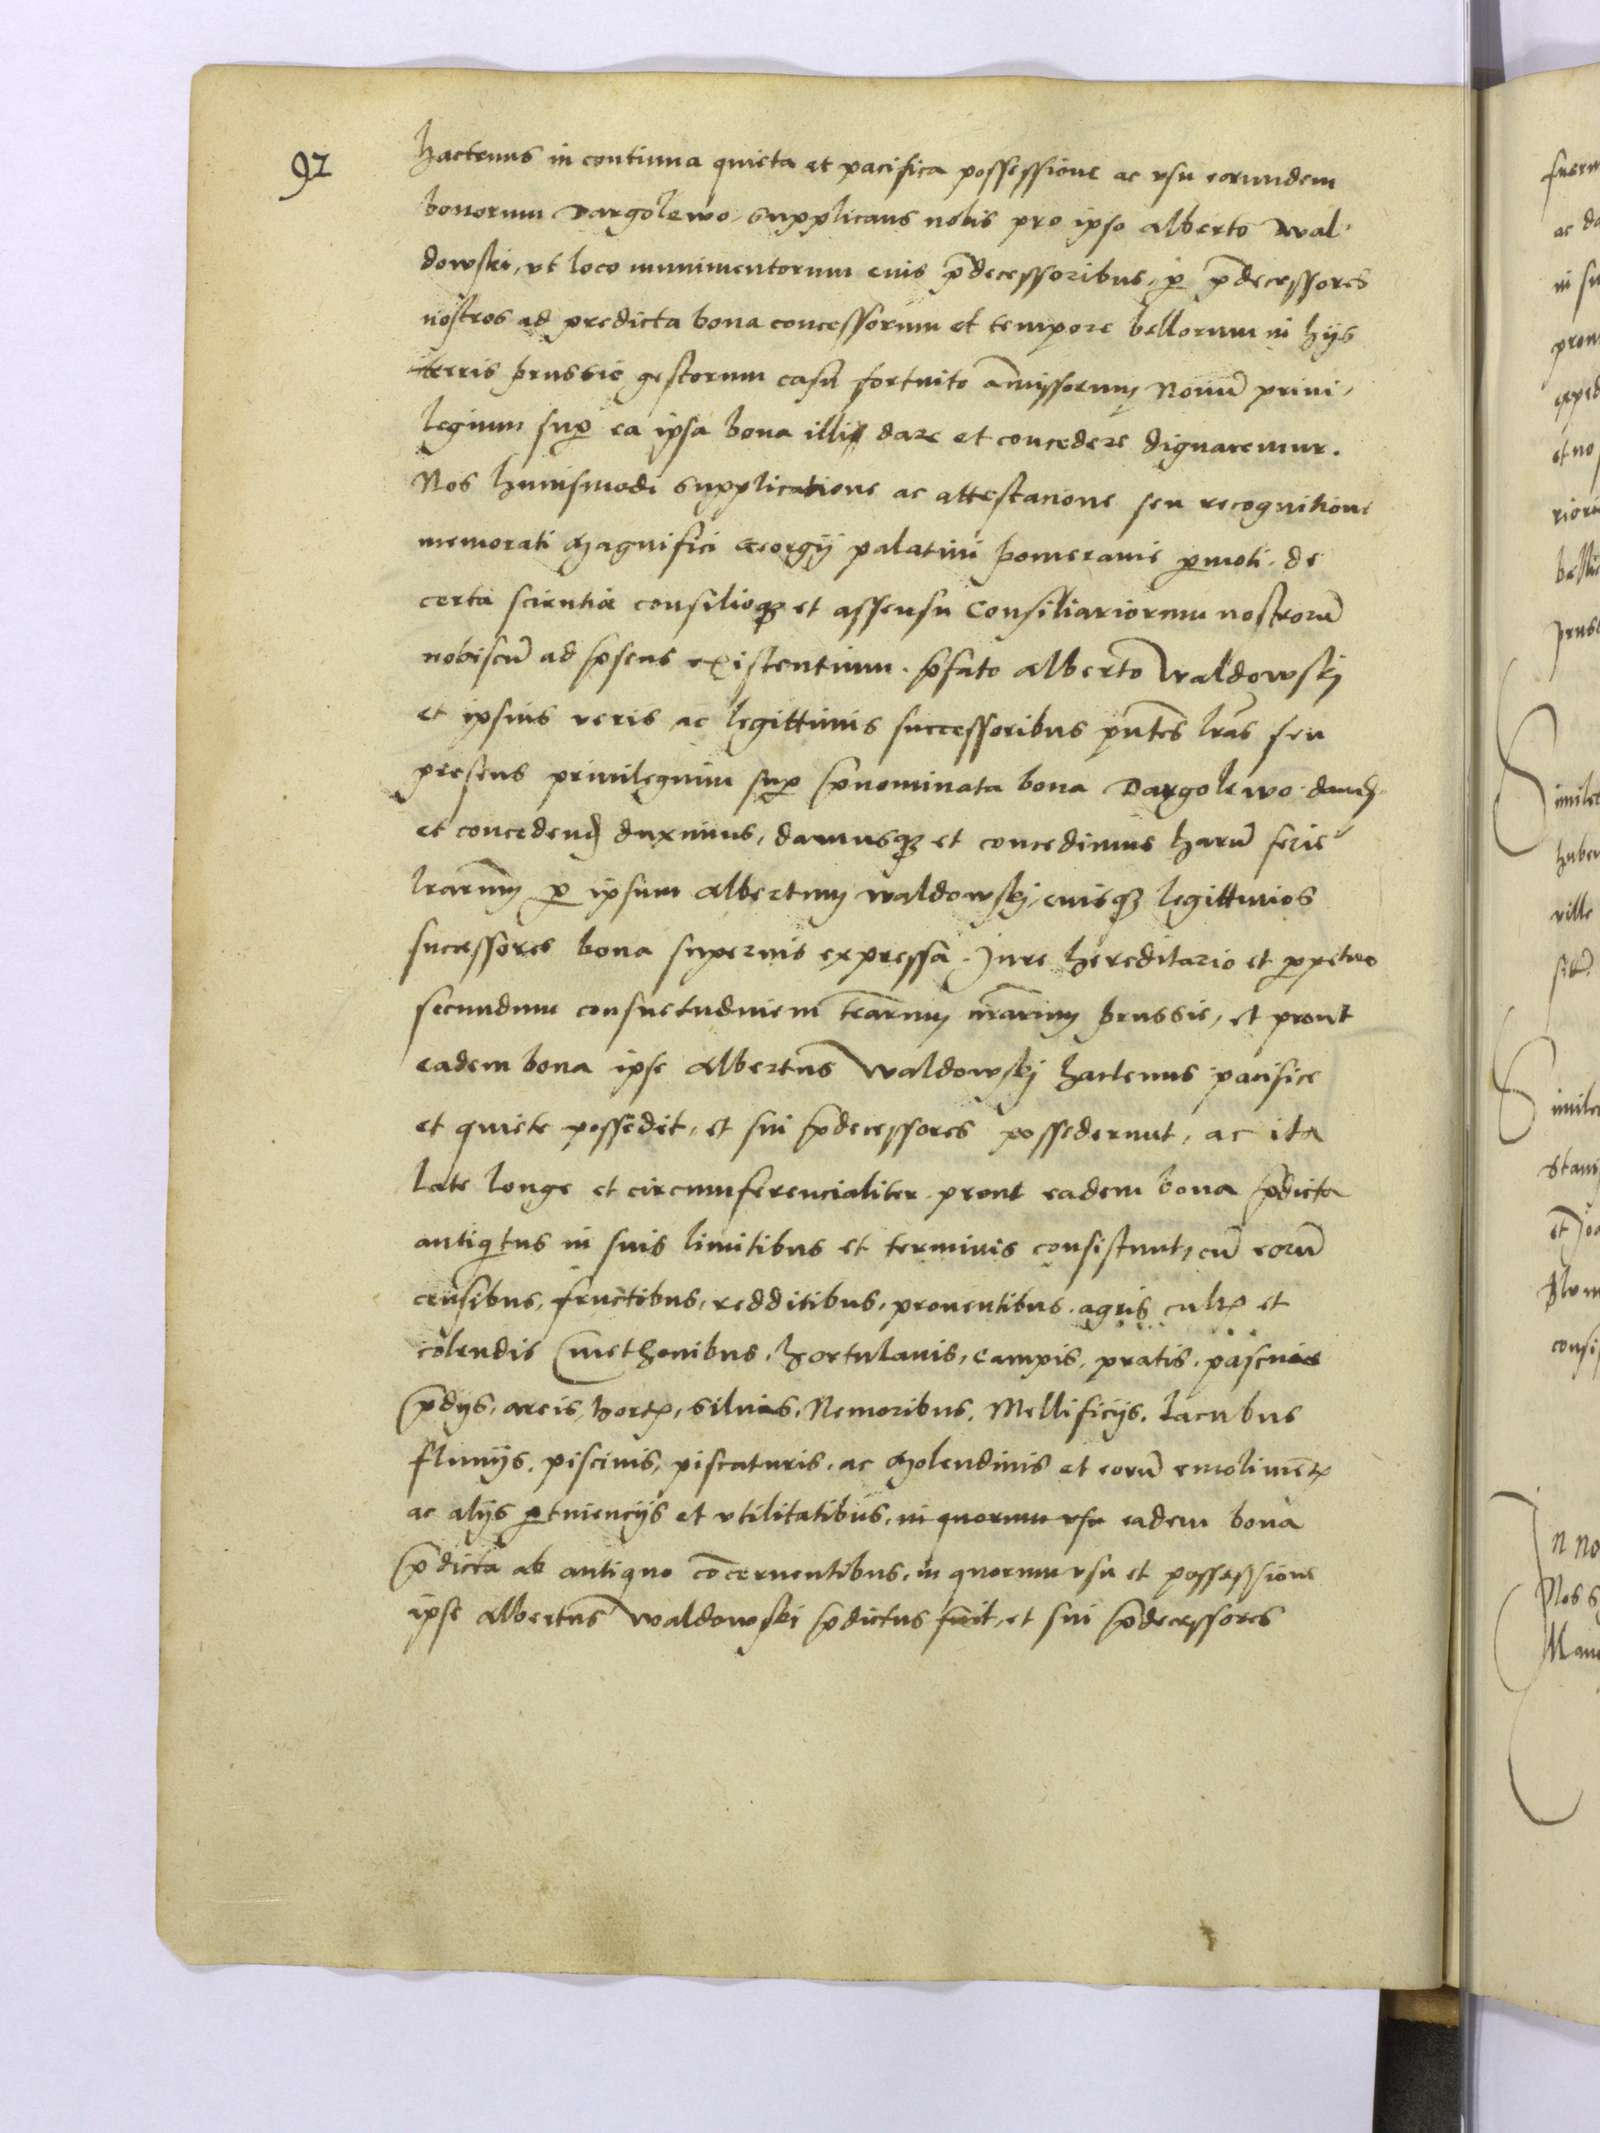 92
hactenus in continua quieta et pacifica possessione ac usu eorundem
bonorum Dargolewo, supplicans nobis pro ipso Alberto Wal-
dowski, ut loco munimentorum eius p̄decessoribus, p̱ p̄decessores
nostros ad predicta bona concessorum et tempore bellorum in hijs
terris Prussie gestorum casu fortuito am̄issorum, Nouū priui-
legium sup̱ ea ipsa bona illi dare et concedere dignaremur.
Nos huiusmodi supplicatione ac attestacione seu recognitione
memorati Magnifici Georgij palatini Pomeranie p̱moti. de
certa scientia consilioqꝫ et assensu Consiliariorum nostrorū
nobiscū ad p̄sens existentium. p̄fato Alberto Waldowskj
et ipsius veris ac legittimis successoribus p̄ntēs lrās seu
presens priuilegium sup̱ p̄nominata bona Dargolewo dand̄
et concedend̄ duximus, damusqꝫ et concedimus harū serie
lrārum p̱ ipsum Albertum Waldowskj, eiusqꝫ legittimos
successores bona superius expressa. Jure hereditario et p̱petuo
secundum consuetudinem terrārum nrārum Prussie, et prout
eadem bona ipse Albertus Waldowskj hactenus pacifice
et quiete possedit, et sui p̄decessores possederunt, ac ita
late longe et circumferencialiter prout eadem bona p̄dicta
antiqͥtus in suis limitibus et terminis consistunt, cū eorū
censibus, fructibus, redditibus, prouentibus, agris cultꝭ et
colendis Cmethonibus, hortulanis, campis, pratis, pascuis
p̄dijs, areis, hortꝭ, siluis, Nemoribus, Mellificijs, Lacubus
fluuijs, piscinis, piscaturis, ac Molendinis et eorū emolimētꝭ
ac alijs p̱tinencijs et utilitatibus, in quorum usu eadem bona
p̄dicta ab antiquo cōcernentibus, in quorum usu et possessione
ipse Albertus Waldowski p̄dictus fuit, et sui p̄decessores